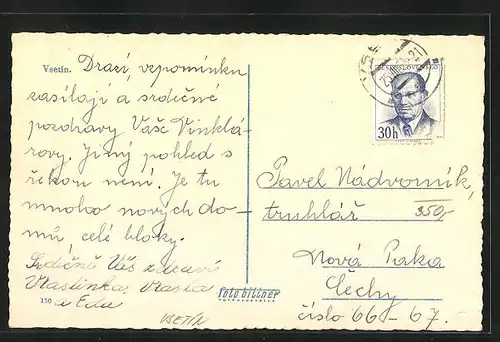 Vsetín. Drazí, vzpomínku
zasílají a srdečné
pozdravy Vaše Vinklá-
rovy. Jiný pohled s
řekou není. Je tu
mnoho nových do-
mů, celé bloky.
Srdečně Vás zdraví
Vlastinka, Vlasta
a Eda
150
VSETÍN
foto bittner
ČESKOSLOVENSKO
30h
Pavel Nádvorník,
truhlář
350,-
Nová Paka
Čechy
číslo 66-67.